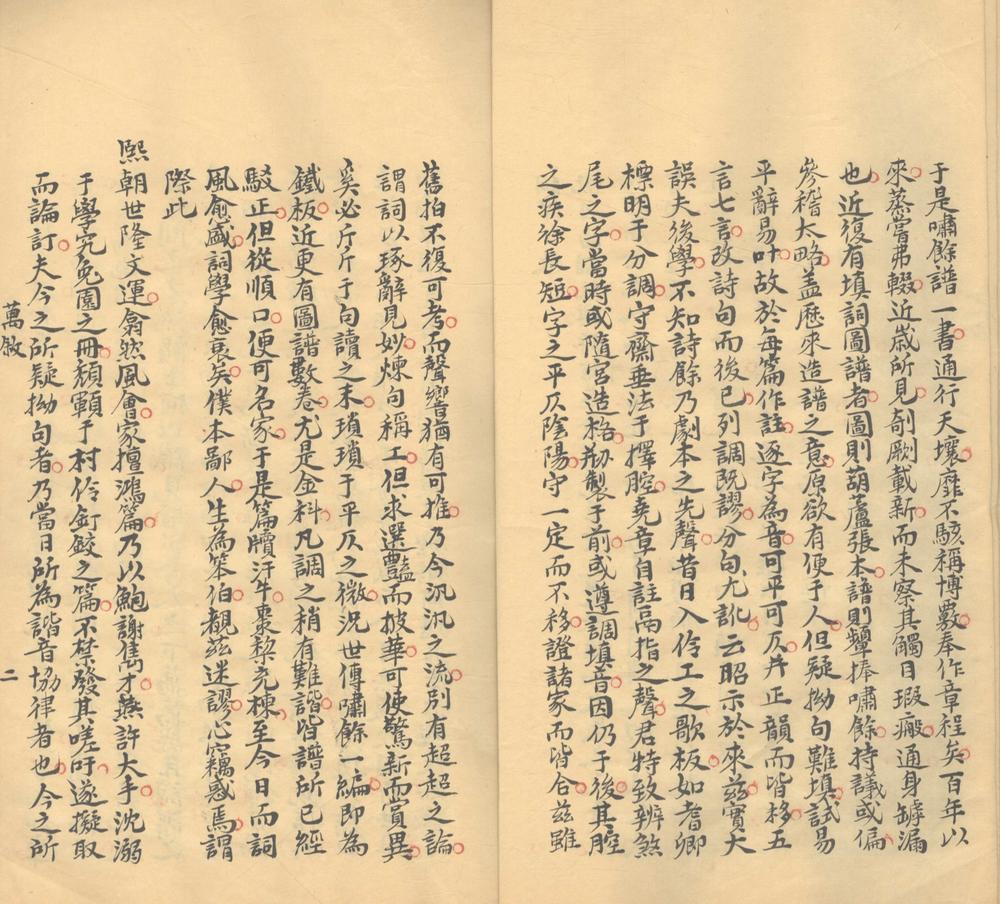 于是嘯餘譜一書通行天壤靡不駭稱博覈奉作章程矣百年以
來蒸嘗弗輟近歲所見剞劂載新而未察其觸目瑕瘢通身罅漏
也近復有填詞圖譜者圖則葫蘆張本譜則顰捧嘯餘持議或偏
參稽太略蓋歷來造譜之意原欲有便于人但疑拗句難填試易
平辭易叶故於每篇作註逐字為音可平可仄幷正韻而皆移五
言七言改詩句而後已列調既謬分句尤訛云昭示於來茲實大
誤夫後學不知詩餘乃劇本之先聲昔日入伶工之歌板如耆卿
標明于分調守齋垂法于擇腔堯章自註鬲指之聲君特致辨煞
尾之字當時或隨宮造格刱製于前或遵調填音因仍于後其腔
之疾徐長短字之平仄陰陽守一定而不移證諸家而皆合茲雖
舊拍不復可考而聲響猶有可推乃今汎汎之流別有超超之論
謂詞以琢辭見妙煉句稱工但求選豔而披華可使驚新而賞異
奚必斤斤于句讀之末瑣瑣于平仄之微況世傳嘯餘一編即為
鐵板近更有圖譜數卷尤是金科凡調之稍有難諧皆譜所已經
駁正但從順口便可名家于是篇牘汗牛棗棃充棟至今日而詞
風愈盛詞學愈衰矣僕本鄙人生為笨伯覩茲迷謬心竊惑焉謂
際此
熙朝世隆文運翕然風會家擅鴻篇乃以鮑謝雋才燕許大手沈溺
于學究兔園之冊頹顐于村伶釘鉸之篇不禁發其嗟吁遂擬取
而論訂夫今之所疑拗句者乃當日所為諧音協律者也今之所
萬敘
二